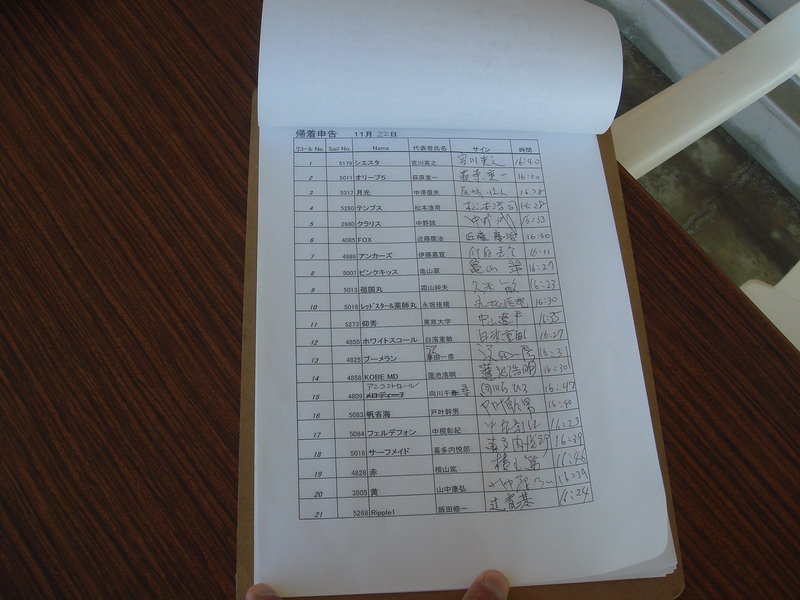 帰着申告 11月22日
リコール No. Sail No. Name 代表者氏名 サイン 時間
1 5179 シエスタ 宮川英之 宮川英之 16:40
2 5011 オリーブ5 萩原圭一 萩原圭一 16:30
3 5317 月光 中澤信夫 16:28
4 5280 テンプス 松本浩司 松本浩司 16:28
5 2880 クラリス 中野誠 中野誠 16:33
6 4085 FOX 近藤慶治 近藤慶治 16:30
7 4886 アンカーズ 伊藤嘉宣
8 5007 ピンクキッス 亀山 亀山 16:27
9 5013 祖国丸 霜山純夫 16:23
10 5018 レッドスター&薬師丸 永坂佳規 16:30
11 5273 仰秀 東京大学 16:35
12 4855 ホワイトスコール 白濱重敏 16:27
13 4825 ブーメラン 澤田一彦 16:31
14 4858 KOBE MD 蓮池浩明 蓮池浩明 16:30
15 4809 アンコントロール メロディーヨ 向川千 向川ちひろ 16:47
16 5083 帆省海 戸叶幹男 16:40
17 5084 フェルデフォン 中根彰紀 16:23
18 5016 サーフメイド 喜多内悦郎 喜多内悦郎 16:39
19 4828 赤 横山紘 16:46
20 3805 黄 山中康弘 16:39
21 5268 Ripple1 飯田修一 16:24